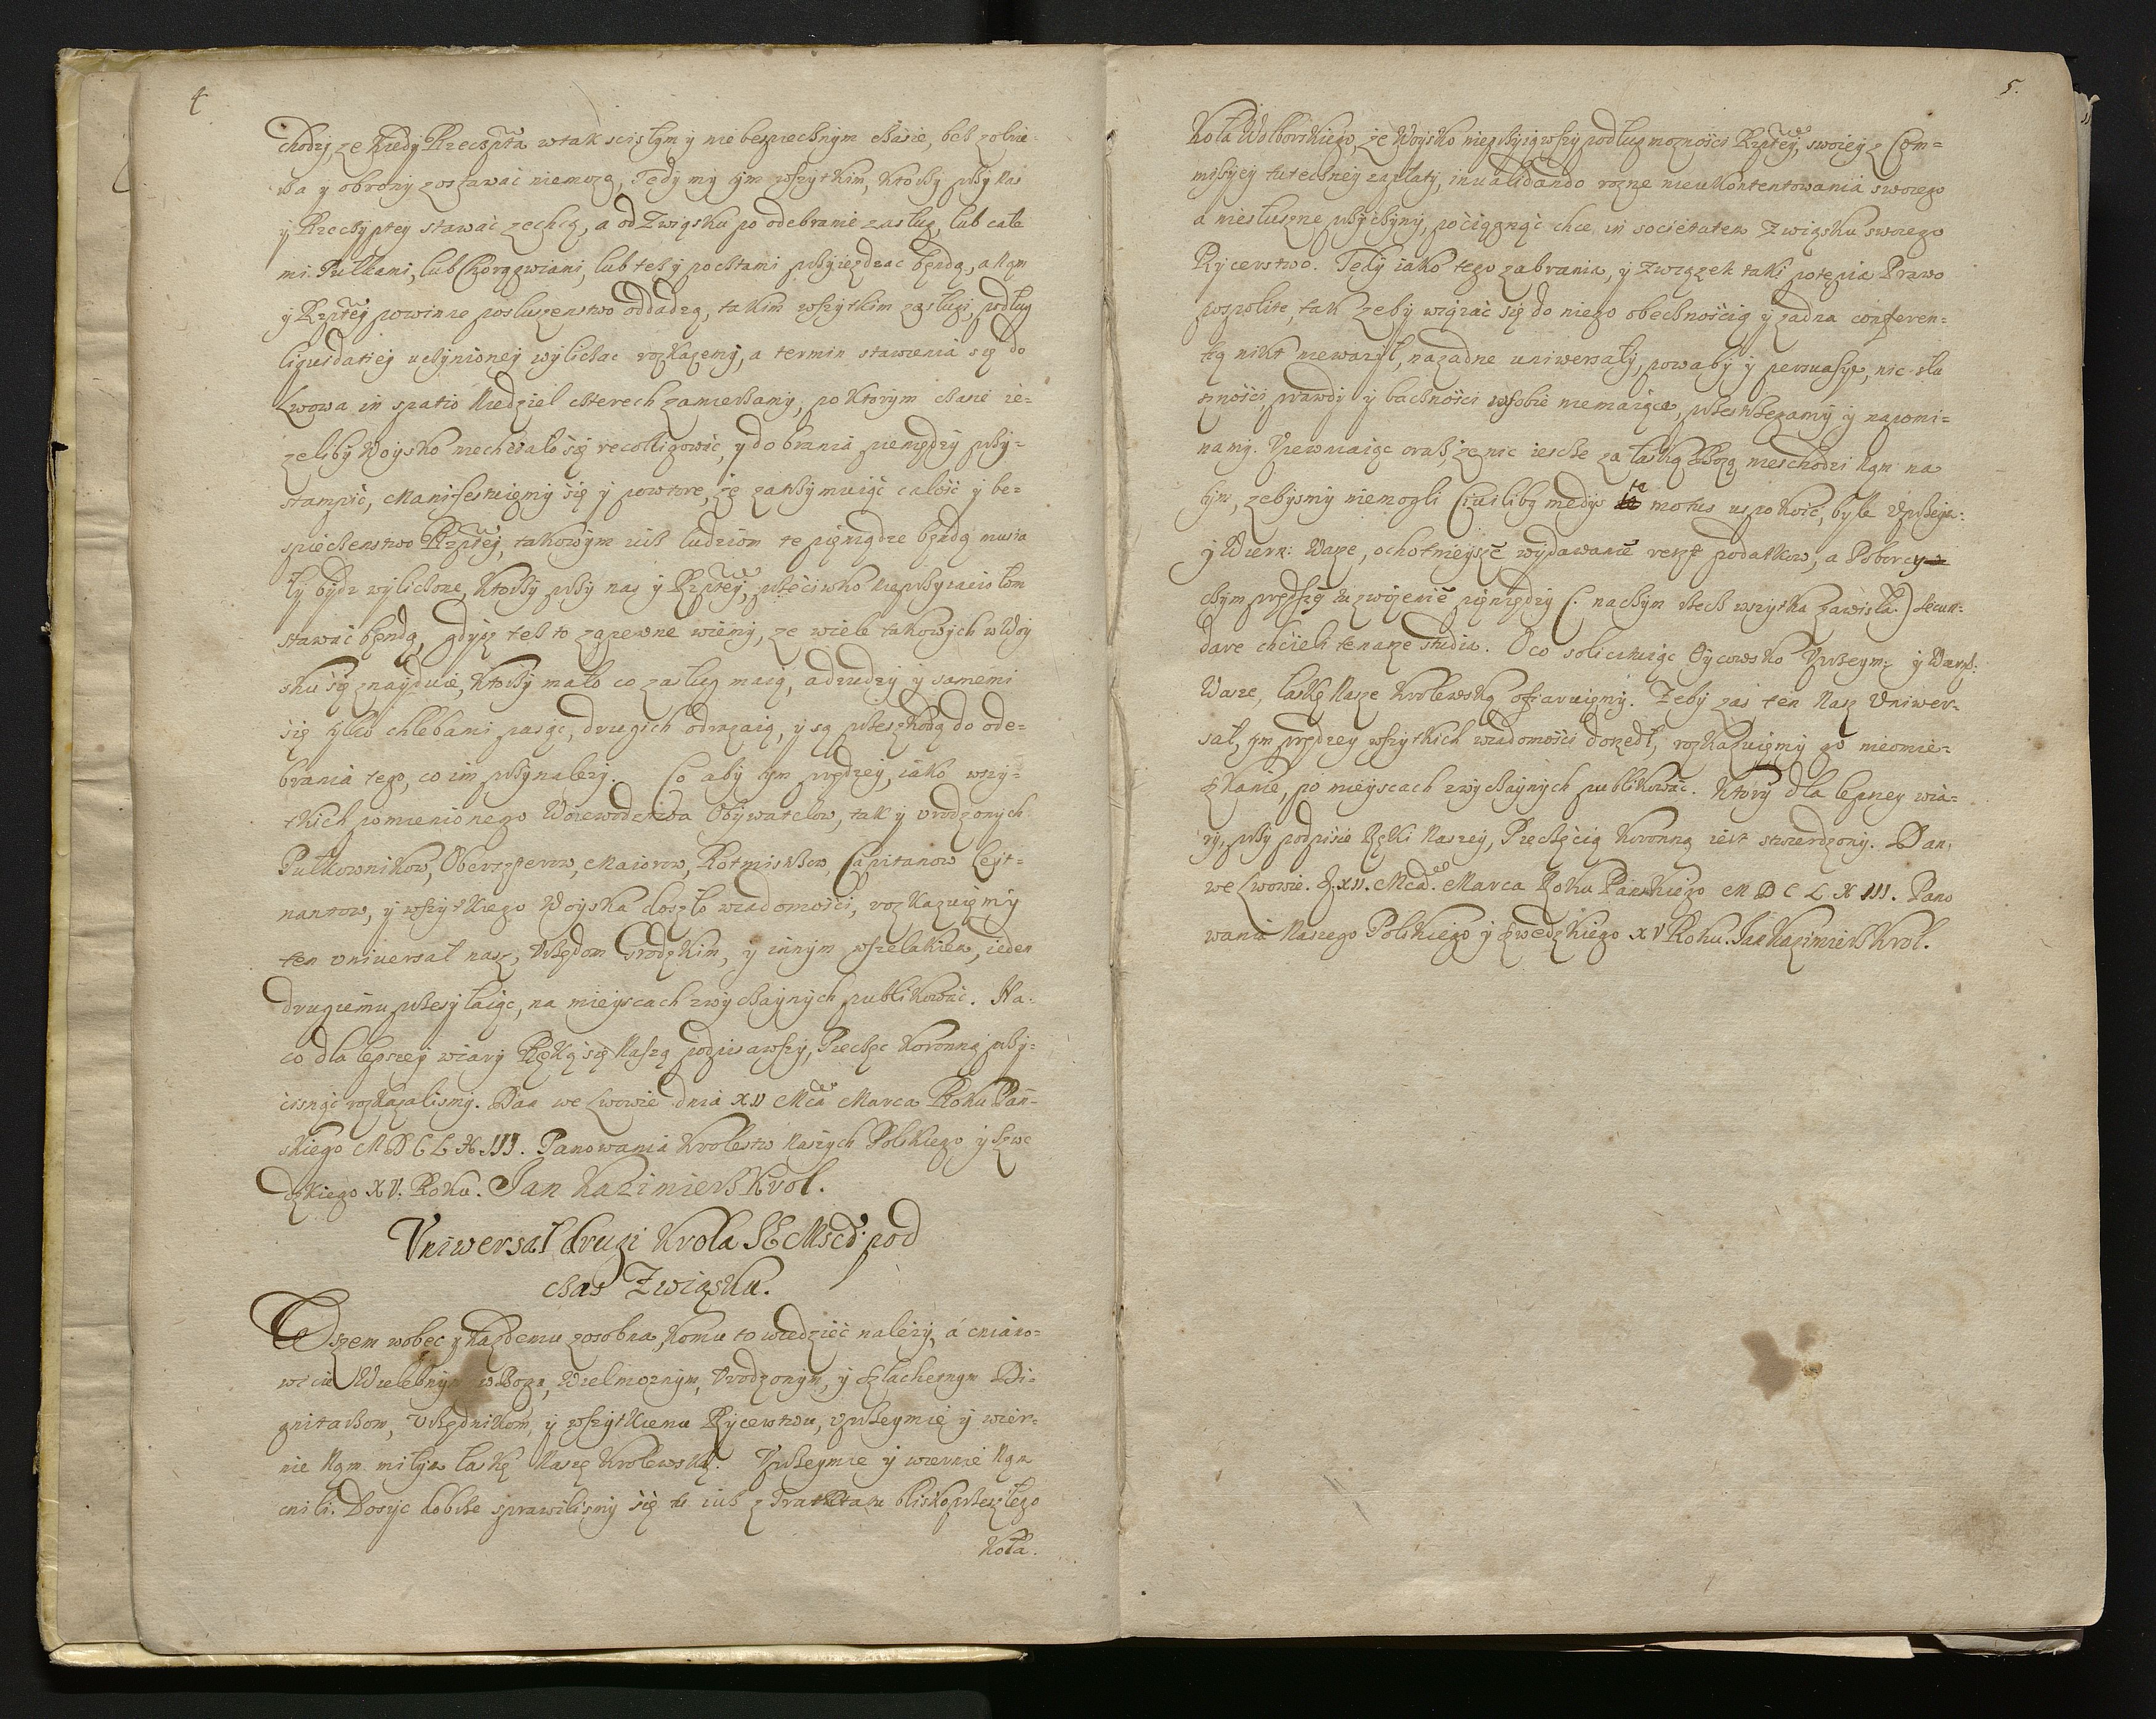 4
chodzi, ze kiedy Rzeczpta w tak scisłym y niebespiecznym czasie, bez zołnie-
rza y obrony zostawać niemoze, Tedy my tym wszytkim, ktorzy przy Nas
y Rzeczyptey stawać zechcą, a od Związku po odebranie zasług, lub całe
mi Pułkami, lub Chorągwiami, lub tesz y pocztami przyiezdzac będą, a Nam
y Rzptey powinne posłuszenstwo oddadzą, takim wszytkim zasługi, podług
liquidatiey uczynioney wyliczac roskazemy, a termin stawienia się do
Lwowa in spatio Niedziel czterech zamierzamy, po ktorym czasie ie-
zeliby Woysko niechciało się recolligować, y do brania pieniędzy przy-
stampić, Manifestuiemy się y powtore, ze zatrzymuiąc całość y be-
spieczenstwo Rzptey, takowym iusz ludziom te pieniądze będą musia
ły bydz wyliczone, ktorzy przy nas y Rzptey, przeciwko nieprzyiaciołom
stawać będą, gdysz tesz to zapewne wiemy, ze wiele takowych w Woy
sku się znayduie, ktorzy mało co zasług maią, a drudzy y samemi
się tylko chlebami pasąc, drugich odrazaią, y są przeszkodą do ode-
brania tego, co im przynalezy. Co aby tym prędzey, iako wszy-
tkich pomienionego Woiewodztwa Obywatelow, tak y Urodzonych
Pułkownikow, Oberszterow, Maiorow, Rotmistrzow, Capitanow Leyt-
nantow, y wszytkiego Woyska doszło wiadomości, rozkazuiemy
ten universał nasz, Urzędom Grodzkim, y innym wszelakiem, ieden
drugiemu przesyłaiąc, na mieyscach zwyczaynych publikować. Na-
co dla lepszey wiary Ręką się Naszą podpisawszy, Pieczęc Koronną przy-
cisnąc rozkazalismy. Dan we Lwowie dnia XII Mca Marca Roku Pań-
skiego MDCLXIII. Panowania Krolestw Naszych Polskiego y Szwe
dzkiego XV. Roku. Jan Kazimierz Krol.
Vniwersał drugi Krola JE Mści pod
czas Związku.
Wszem wobec y kazdemu zosobna, komu to wiedzieć nalezy, á miano-
wicie Wielebnym w Bogu, Wielmoznym, Urodzonym, y Szlachetnym Di-
gnitarzom, Urzędnikom, y wszytkiemu Rycerstwu, Uprzeymie y wier-
nie Nam miłym łaskę Naszę Krolewską. Uprzeymie y wiernie Nam
mili. Dosyc dobrze sprawilismy się tu iusz z Traktatu blisko przeszłego
Koła.
5.
Koła Wolborskiego, ze Woysko nieprzyiąwszy podług moznosci Rzptey, swoiey z Com-
missyey tuteczney zapłaty, invalidando rozne nieukontentowania swoiego
a niesłuszne przyczyny, pociągnąć chce in societatem Związku swoiego
Rycerstwo. Tedy iako tego zabrania, y Związek taki potępia Prawo
pospolite, tak zeby wiązać się do niego obecznością y zadna conferen-
tią nikt niewazył, na zadne uniwersały, powaby y persuasye, nic słu
szności, prawdy y baczności w sobie niemaiące, przestrzegamy y napomi-
namy. Upewniaiąc orasz, ze nic ieszcze za łaską Bozą nieschodzi Nam na
tym, zebysmy niemogli Civiliby medys ta motus uspokoić, byle Uprzeym:
y Wiern: Wasze, ochotnieysze wydawanie reszt podatkow, a Poborcy
czym prędsze zwożenie pieniędzy (: na czym rzecz wszytka zawisła:) secun-
dare chcieli te nasze studia. O co solicituiąc Oycowsko Uprzeym: y Wiern:
Wasze, łaskę Nasze Krolewską ofiaruiemy. Zeby zas ten Nasz Vniwer-
sał, tym prędzey wszytkich wiadomości doszedł, rozkazuiemy go nieomie-
szkanie, po mieyscach zwyczaynych publikować. Ktory dla lepszey wia-
ry, przy podpisie Ręki Naszey, Pieczęcią Koronną iest stwierdzony. Dan
we Lwowie. d. XII. Mca Marca Roku Pańskiego MDCLXIII. Pano
wania Naszego Polskiego y Szwedzkiego XV Roku. Jan Kazimierz Krol.